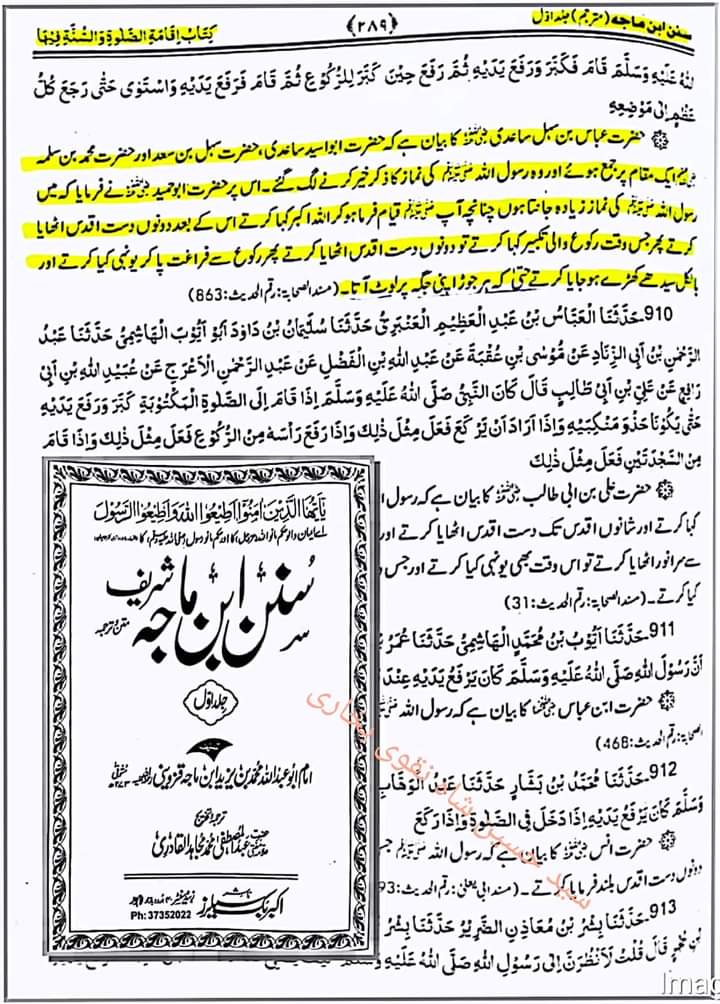 سنن ابن ماجه (مترجم) جلد اوّل
﴿۲۸۹﴾
کتاب اقامة الصلوة والسنة فیها
للهُ عَلَيْهِ وَسَلَّمَ قَامَ فَكَبَّرَ وَرَفَعَ يَدَيْهِ ثُمَّ رَفَعَ حِيْنَ كَبَّرَ لِلرُّكُوْعِ ثُمَّ قَامَ فَرَفَعَ يَدَيْهِ وَاسْتَوٰى حَتّٰى رَجَعَ كُلُّ
عَظْمٍ اِلٰى مَوْضِعِهٖ
حضرت عباس بن سہل ساعدی رضی اللہ عنہ کا بیان ہے کہ حضرت ابو اسید ساعدی، حضرت سہل بن سعد اور حضرت محمد بن سلمہ
رضی اللہ عنہم ایک مقام پر جمع ہوئے اور وہ رسول اللہ ﷺ کی نماز کا ذکر خیر کرنے لگ گئے۔ اس پر حضرت ابوحمید رضی اللہ عنہ نے فرمایا کہ میں
رسول اللہ ﷺ کی نماز زیادہ جانتا ہوں چنانچہ آپ ﷺ قیام فرما ہو کر اللہ اکبر کہا کرتے اس کے بعد دونوں دست اقدس اٹھایا
کرتے پھر جس وقت رکوع والی تکبیر کہا کرتے تو دونوں دست اقدس اٹھایا کرتے پھر رکوع سے فراغت پا کر یونہی کیا کرتے اور
بالکل سیدھے کھڑے ہو جایا کرتے حتیٰ کہ ہر جوڑ اپنی جگہ پر لوٹ آتا۔ (مسند الصحابۃ: رقم الحدیث: 863)
910 حَدَّثَنَا الْعَبَّاسُ بْنُ عَبْدِ الْعَظِيْمِ الْعَنْبَرِيُّ حَدَّثَنَا سُلَيْمَانُ بْنُ دَاوٗدَ اَبُوْ اَيُّوْبَ الْهَاشِمِيُّ حَدَّثَنَا عَبْدُ
الرَّحْمٰنِ بْنُ اَبِي الزِّنَادِ عَنْ مُوْسَى بْنِ عُقْبَةَ عَنْ عَبْدِ اللهِ بْنِ الْفَضْلِ عَنْ عَبْدِ الرَّحْمٰنِ الْاَعْرَجِ عَنْ عُبَيْدِ اللهِ بْنِ اَبِيْ
رَافِعٍ عَنْ عَلِيِّ بْنِ اَبِيْ طَالِبٍ قَالَ كَانَ النَّبِيُّ صَلَّى اللهُ عَلَيْهِ وَسَلَّمَ اِذَا قَامَ اِلَى الصَّلٰوةِ الْمَكْتُوْبَةِ كَبَّرَ وَرَفَعَ يَدَيْهِ
حَتّٰى يَكُوْنَا حَذْوَ مَنْكِبَيْهِ وَاِذَا اَرَادَ اَنْ يَّرْكَعَ فَعَلَ مِثْلَ ذٰلِكَ وَاِذَا رَفَعَ رَاْسَهٗ مِنَ الرُّكُوْعِ فَعَلَ مِثْلَ ذٰلِكَ وَاِذَا قَامَ
مِنَ السَّجْدَتَيْنِ فَعَلَ مِثْلَ ذٰلِكَ
حضرت علی بن ابی طالب رضی اللہ عنہ کا بیان ہے کہ رسول ا
کہا کرتے اور شانوں اقدس تک دست اقدس اٹھایا کرتے اور
سے سر انور اٹھایا کرتے تو اس وقت بھی یونہی کیا کرتے اور جس و
کیا کرتے۔ (مسند الصحابۃ: رقم الحدیث: 31)
911 حَدَّثَنَا اَيُّوْبُ بْنُ مُحَمَّدٍ الْهَاشِمِيُّ حَدَّثَنَا عُمَرُ
اَنَّ رَسُوْلَ اللهِ صَلَّى اللهُ عَلَيْهِ وَسَلَّمَ كَانَ يَرْفَعُ يَدَيْهِ عِنْدَ
حضرت ابن عباس رضی اللہ عنہما کا بیان ہے کہ رسول اللہ ﷺ
الصحابۃ: رقم الحدیث: 468)
912 حَدَّثَنَا مُحَمَّدُ بْنُ بَشَّارٍ حَدَّثَنَا عَبْدُ الْوَهَّابِ
وَسَلَّمَ كَانَ يَرْفَعُ يَدَيْهِ اِذَا دَخَلَ فِي الصَّلٰوةِ وَاِذَا رَكَعَ
حضرت انس رضی اللہ عنہ کا بیان ہے کہ رسول اللہ ﷺ جس
دونوں دست اقدس بلند فرمایا کرتے۔ (مسند ابی یعلیٰ: رقم الحدیث: 93
913 حَدَّثَنَا بِشْرُ بْنُ مُعَاذٍ الضَّرِيْرُ حَدَّثَنَا بِشْرُ
بْنِ حُجْرٍ قَالَ قُلْتُ لَاَنْظُرَنَّ اِلٰى رَسُوْلِ اللهِ صَلَّى اللهُ عَلَيْهِ وَسَلَّمَ
يٰاَيُّهَا الَّذِيْنَ اٰمَنُوْا اَطِيْعُوا اللهَ وَاَطِيْعُوا الرَّسُوْلَ
سنن ابن ماجه شریف
متن و ترجمہ
جلد اوّل
تصنیف
امام ابو عبد اللہ محمد بن یزید ابن ماجہ قزوینی
ترجمہ و تخریج
عبد المصطفیٰ محمد مجاہد القادری
ناشر
اکبر بک سیلرز
Ph: 37352022
سید حسنین شاہ نقوی بخاری
Imag